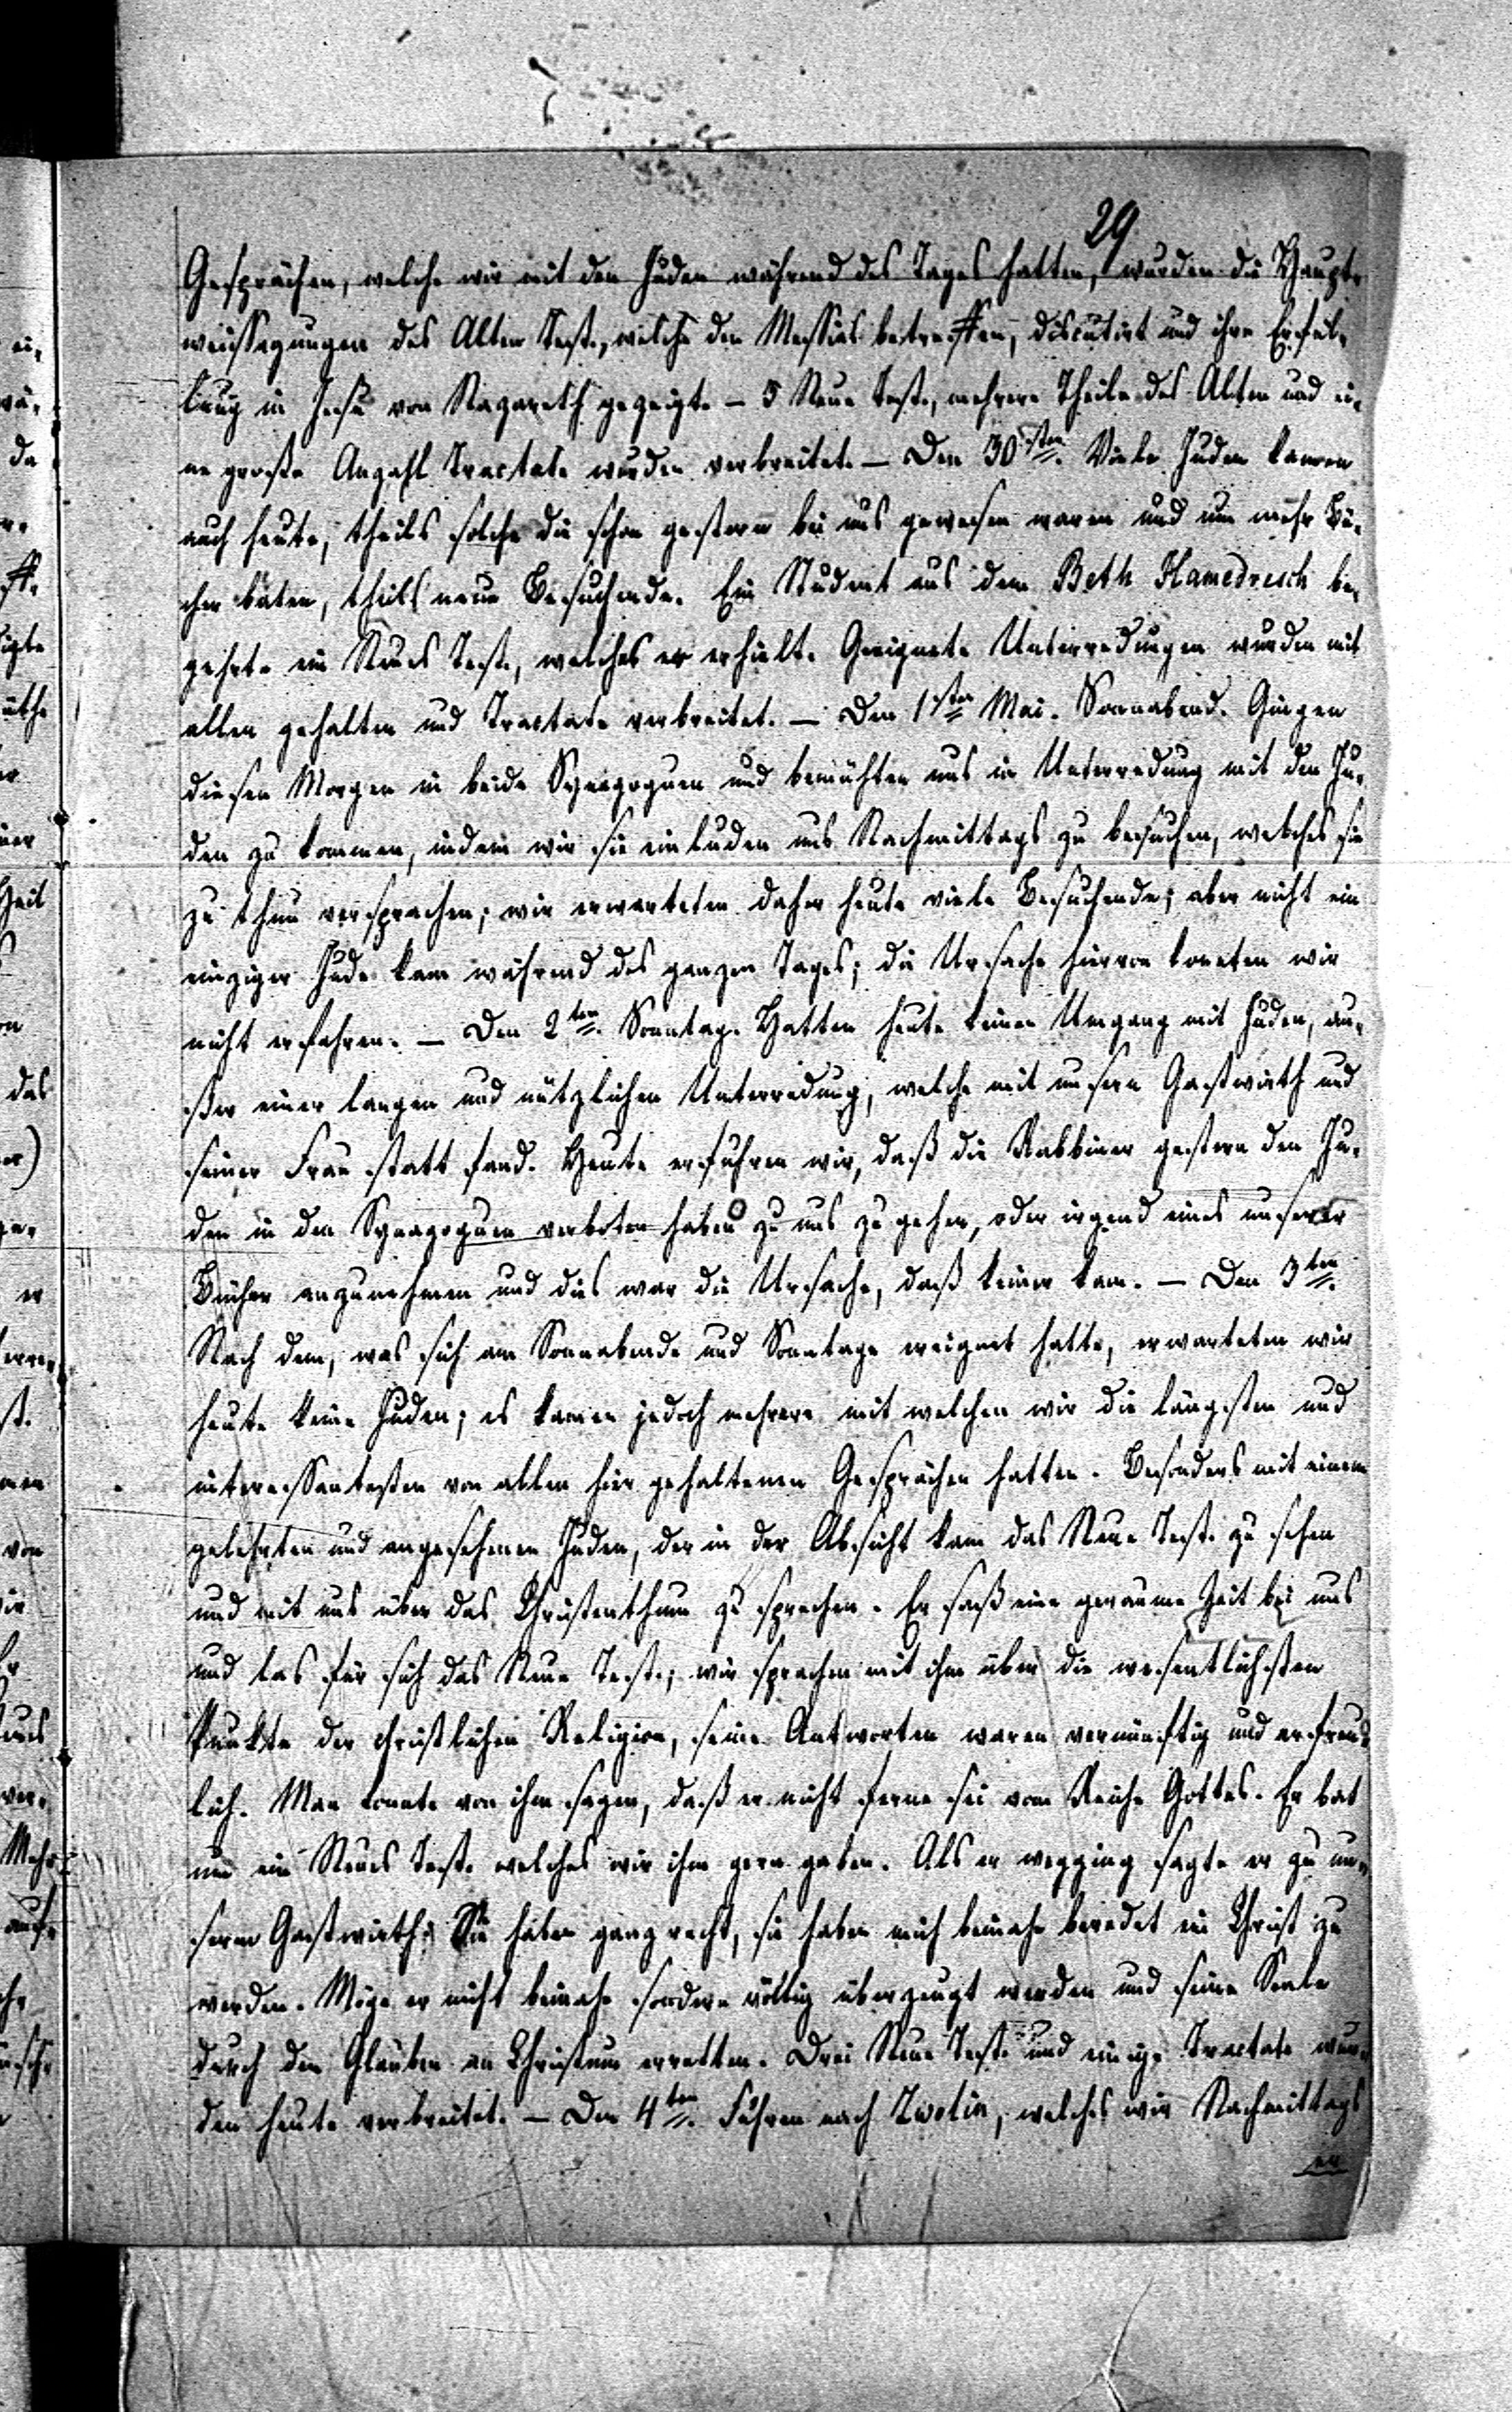 29
Gesprächen, welche wir mit den Juden während des Tages hatten, wurden die Haupt-
weissagungen des Alten Test., welche den Messias betreffen, discutirt und ihre Erfül-
lung in Jesu von Nazareth gezeigt. – 5 Neue Test., mehrere Theile des Alten und ei-
ne große Anzahl Tractate wurden verbreitet. – Den 30sten. Viele Juden kamen
auch heute, theils solche die schon gestern bei uns gewesen waren und um mehr Bü-
cher bäten, theils neue Besuchende. Ein Student aus dem Beth Hamedresch be-
gehrte ein Neues Test., welches er erhielt. Geeignete Unterredungen wurden mit
allen gehalten und Tractate verbreitet. – Den 1sten Mai. Sonnabend. Gingen
diesen Morgen in beide Synagoguen und bemühten uns in Unterredung mit den Ju-
den zu kommen, indem wir sie einluden uns Nachmittags zu besuchen, welches sie
zu thun versprachen; wir erwarteten daher heute viele Besuchende; aber nicht ein
einziger Jude kam während des ganzen Tages; die Ursache hiervon konnten wir
nicht erfahren. – Den 2ten. Sonntag. Hatten heute keinen Umgang mit Juden, au-
ßer einer langen und nützlichen Unterredung, welche mit unserm Gastwirth und
seiner Frau statt fand. Heute erfuhren wir, daß die Rabbiner gestern den Ju-
den in den Synagoguen verboten haben zu uns zu gehen, oder irgend eines unserer
Bücher anzunehmen und dies war die Ursache, daß keiner kam. – Den 3ten.
Nach dem, was sich am Sonnabende und Sonntage ereignet hatte, erwarteten wir
heute keine Juden; es kamen jedoch mehrere mit welchen wir die längsten und
interessantesten von allen hier gehaltenen Gesprächen hatten. Besonders mit einem
gelehrten und angesehenen Juden, der in der Absicht kam das Neue Test. zu sehen
und mit uns über das Christenthum zu sprechen. Er saß eine geraume Zeit bei uns
und las für sich das Neue Test.; wir sprachen mit ihm über die wesentlichsten
Punkte der christlichen Religion, seine Antworten waren vernünftig und erfreu-
lich. Man konnte von ihm sagen, daß er nicht ferne sei vom Reiche Gottes. Er bat
um ein Neues Test. welches wir ihm gern gaben. Als er wegging sagte er zu un-
serm Gastwirth: Sie haben ganz recht, sie haben mich beinahe beredet ein Christ zu
werden. Möge er nicht beinahe sondern völlig überzeugt werden und seine Seele
durch den Glauben an Christum erretten. Drei Neue Test. und einige Tractate wur-
den heute verbreitet. – Den 4ten. Fuhren nach Zwolin, welches wir Nachmittags
er